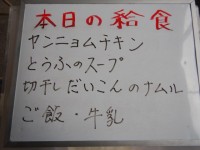 本日の給食
ヤンニョムチキン
とうふのスープ
切干しだいこんのナムル
ご飯・牛乳